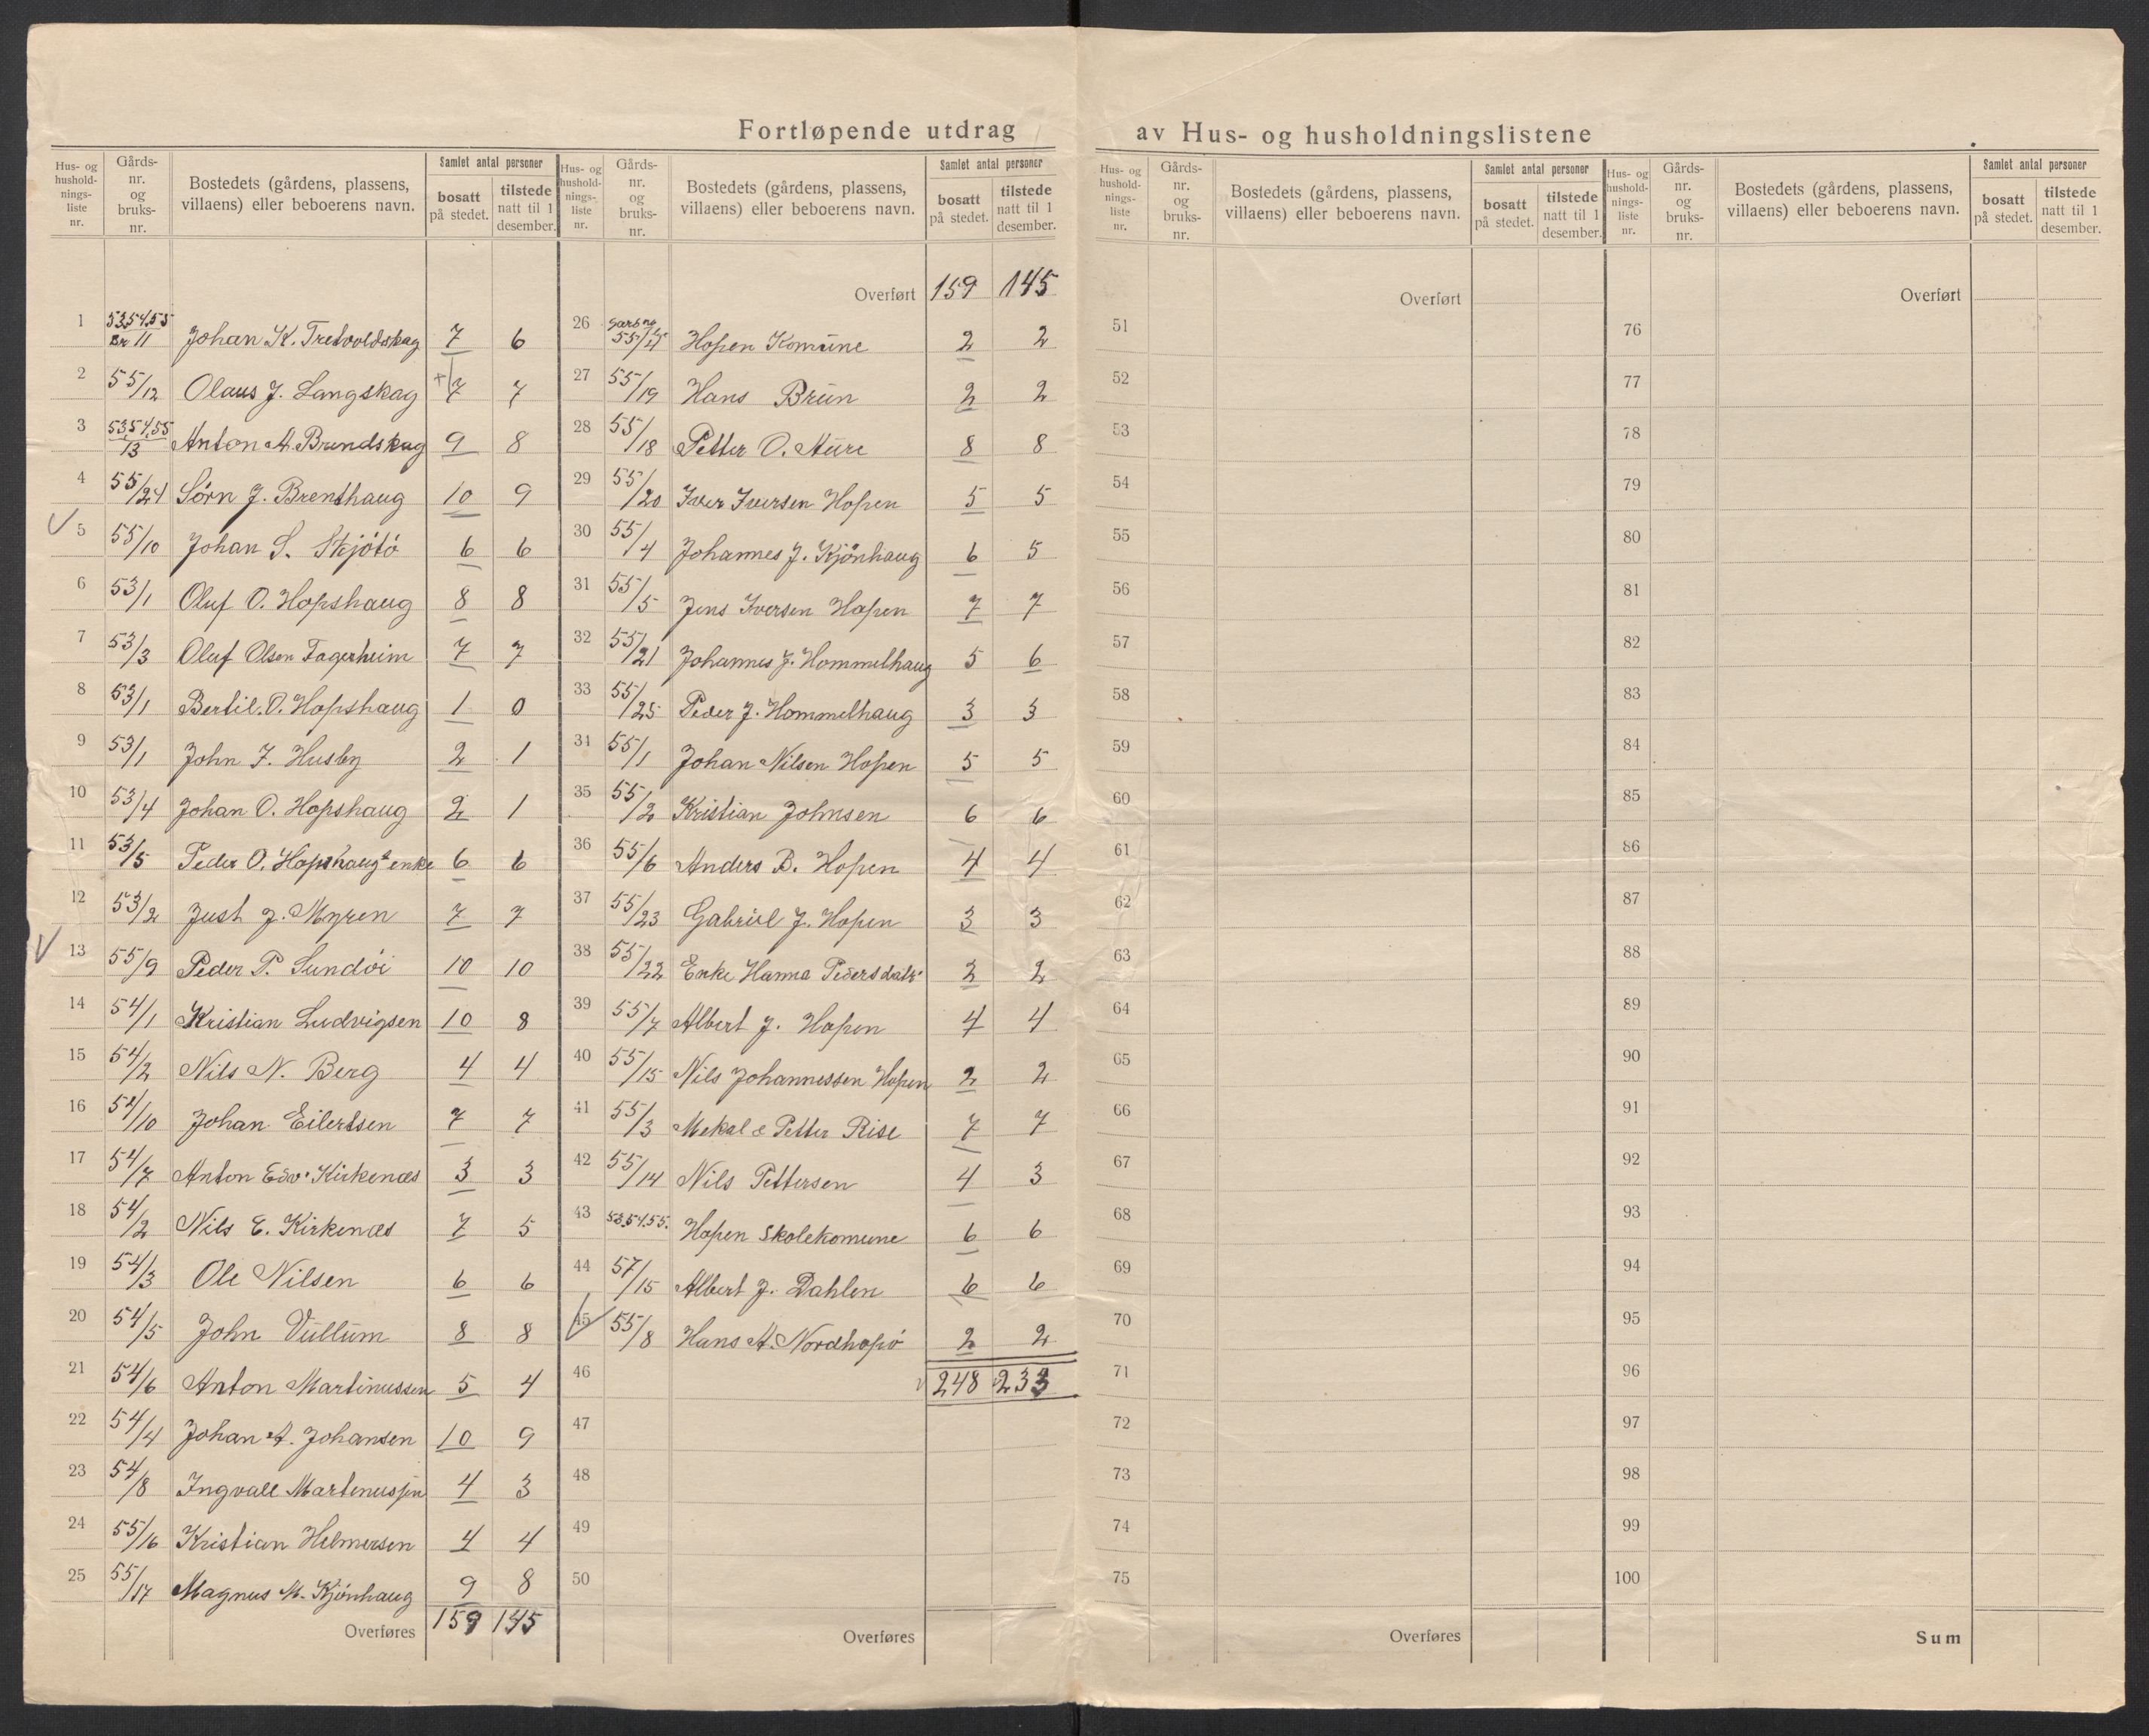 Fortløpende utdrag av Hus- og husholdningslistene
Hus- og husholdnings-liste nr. | Gårds-nr. og bruks-nr. | Bostedets (gårdens, plassens, villaens) eller beboerens navn. | Samlet antal personer | bosatt på stedet. | tilstede natt til 1 desember.
1 53.54.55 Br 11 Johan K. Tretvoldskag 7 6
2 55/12 Olaus J. Langskag + 7 7
3 53.54.55/13 Anton A. Brundskag 9 8
4 55/24 Sørn J. Brenthaug 10 9
5 55/10 Johan S. Skjøtø 6 6
6 53/1 Oluf O. Hopshaug 8 8
7 53/3 Oluf Olsen Fagerheim 7 7
8 53/1 Bertil. O. Hopshaug 1 0
9 53/1 John J. Husby 2 1
10 53/4 Johan O. Hopshaug 2 1
11 53/5 Peder O. Hopshaugs enke 6 6
12 53/2 Just J. Myren 7 7
13 55/9 Peder P. Sundøi 10 10
14 54/1 Kristian Ludvigsen 10 8
15 54/2 Nils N. Berg 4 4
16 54/10 Johan Eilertsen 7 7
17 54/7 Anton Edv. Kirkenæs 3 3
18 54/2 Nils E. Kirkenæs 7 5
19 54/3 Ole Nilsen 6 6
20 54/5 John Vullum 8 8
21 54/6 Anton Martinussen 5 4
22 54/4 Johan A. Johansen 10 9
23 54/8 Ingvall Martenussen 4 3
24 55/16 Kristian Helmersen 4 4
25 55/17 Magnus M. Kjønhaug 9 8
Overføres 159 145
Hus- og husholdnings-liste nr. | Gårds-nr. og bruks-nr. | Bostedets (gårdens, plassens, villaens) eller beboerens navn. | Samlet antal personer | bosatt på stedet. | tilstede natt til 1 desember.
Overført 159 145
26 55/ Hopen Komune 2 2
27 55/19 Hans Brun 2 2
28 55/18 Petter O. Aure 8 8
29 55/20 Iver Iversen Hopen 5 5
30 55/4 Johannes J. Kjønhaug 6 5
31 55/5 Jens Iversen Hopen 7 7
32 55/21 Johannes J. Hommelhaug 5 6
33 55/25 Peder J. Hommelhaug 3 3
34 55/1 Johan Nilsen Hopen 5 5
35 55/2 Kristian Johnsen 6 6
36 55/6 Anders B. Hopen 4 4
37 55/23 Gabriel J. Hopen 3 3
38 55/22 Enke Hanna Pedersdatr 2 2
39 55/7 Albert J. Hopen 4 4
40 55/15 Nils Johannessen Hopen 2 2
41 55/3 Mekal & Petter Rise 7 7
42 55/14 Nils Pettersen 4 3
43 53.54.55. Hopen Skolekomune 6 6
44 57/15 Albert J. Dahlen 6 6
45 55/8 Hans A. Nordhopø 2 2
46 248 233
47
48
49
50
Overføres
Hus- og husholdnings-liste nr. | Gårds-nr. og bruks-nr. | Bostedets (gårdens, plassens, villaens) eller beboerens navn. | Samlet antal personer | bosatt på stedet. | tilstede natt til 1 desember.
Overført
51
52
53
54
55
56
57
58
59
60
61
62
63
64
65
66
67
68
69
70
71
72
73
74
75
Overføres
Hus- og husholdnings-liste nr. | Gårds-nr. og bruks-nr. | Bostedets (gårdens, plassens, villaens) eller beboerens navn. | Samlet antal personer | bosatt på stedet. | tilstede natt til 1 desember.
Overført
76
77
78
79
80
81
82
83
84
85
86
87
88
89
90
91
92
93
94
95
96
97
98
99
100
Sum